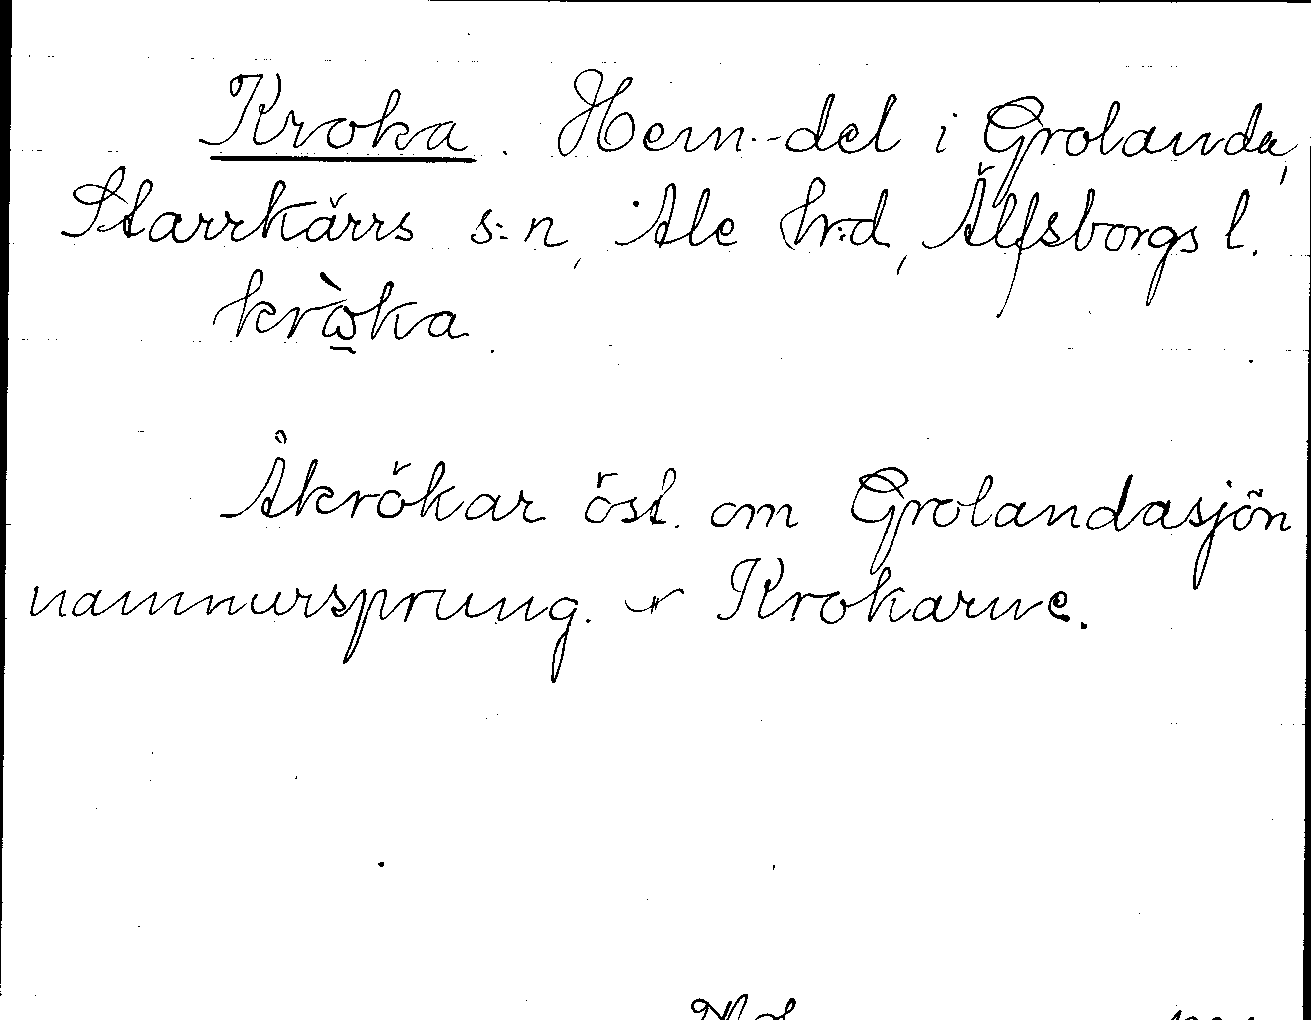 Kroka. Hem.-del i Grolanda,
Starrkärrs s:n, Ale hrd, Älfsborgs l.
krὼka.
Åkrökar öst. om Grolandasjön
namnursprung. Krokarne.